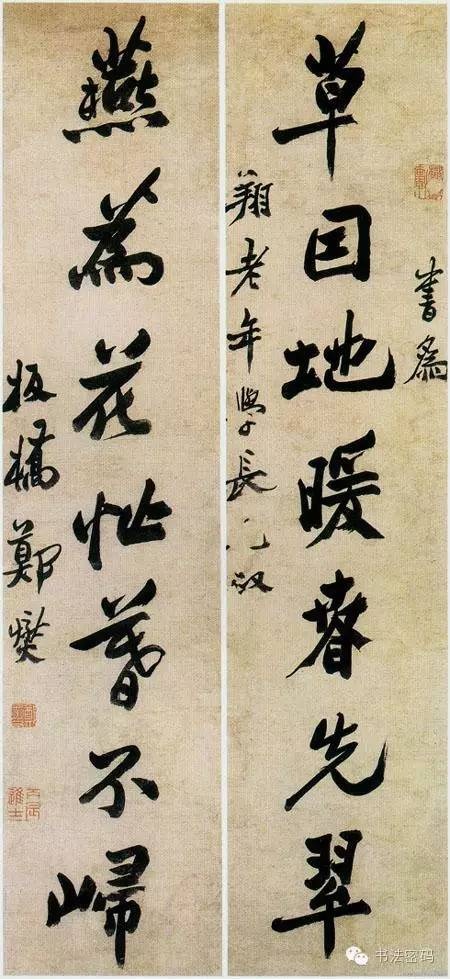 書為
草因地暖春先翠
翔老年學長兄政
燕為花忙暮不歸
板橋鄭燮
丙辰進士
书法密码